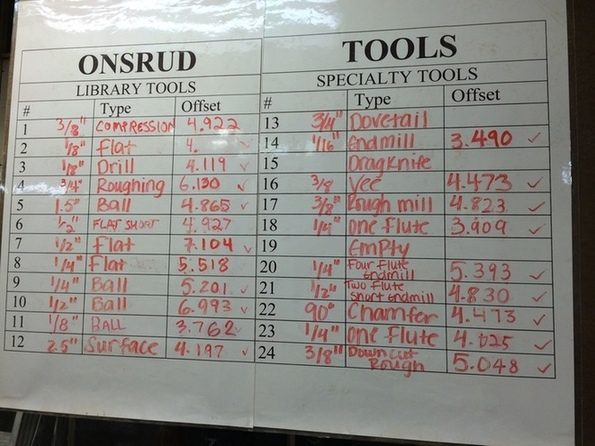 ONSRUD
LIBRARY TOOLS
# Type Offset
1 3/8" COMPRESSION 4.922
2 1/8" flat 4.
3 1/8" Drill 4.119 ✓
4 3/4" Roughing 6.130 ✓
5 1.5" Ball 4.865 ✓
6 1/2" FLAT SHORT 4.927
7 1/2" Flat 7.104 ✓
8 1/4" Flat 5.518
9 1/4" Ball 5.201 ✓
10 1/2" Ball 6.993 ✓
11 1/8" BALL 3.762 ✓
12 2.5" Surface 4.197 ✓
TOOLS
SPECIALTY TOOLS
# Type Offset
13 3/4" Dovetail
14 1/16" endmill 3.490 ✓
15 Dragknife
16 3/8 Vee 4.473 ✓
17 3/8" Rough mill 4.823 ✓
18 1/4" One Flute 3.909 ✓
19 Empty
20 1/4" Four Flute
Endmill 5.393 ✓
21 1/2" Two Flute
Short Endmill 4.830 ✓
22 90° Chamfer 4.473 ✓
23 1/4" One Flute 4.025 ✓
24 3/8" Down cut
Rough 5.048 ✓